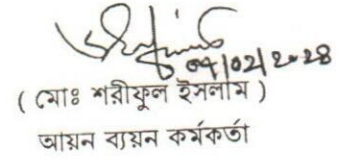 ০৭/০২/২০২৪
( মোঃ শরীফুল ইসলাম )
আয়ন ব্যয়ন কর্মকর্তা